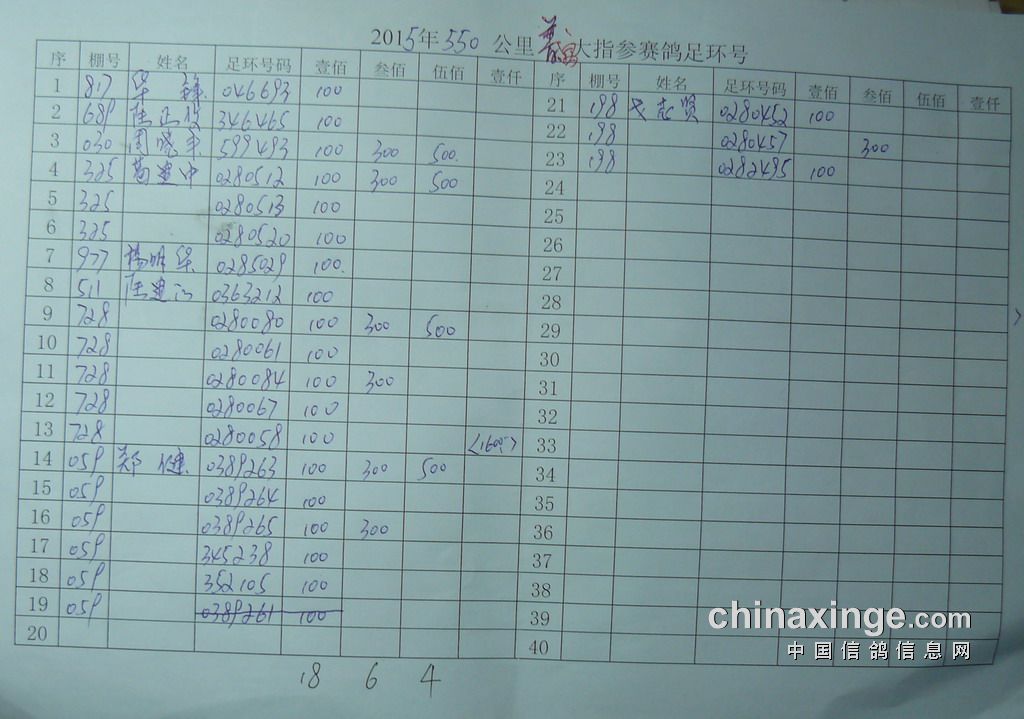 2015年550公里 大指参赛鸽足环号
序 棚号 姓名 足环号码 壹佰 叁佰 伍佰 壹仟
1 817 046693 100
2 689 346465 100
3 030 周晓 599493 100 300 500
4 325 葛建中 0280512 100 300 500
5 325 0280513 100
6 325 0280520 100
7 977 杨明华 0285029 100
8 511 陆建江 0363212 100
9 728 0280080 100 300 500
10 728 0280061 100
11 728 0280084 100 300
12 728 0280067 100
13 728 0280058 100 <1600>
14 059 郑健 0389263 100 300 500
15 059 0389264 100
16 059 0389265 100 300
17 059 345238 100
18 059 352105 100
19 059 0389261 100
20
18 6 4
序 棚号 姓名 足环号码 壹佰 叁佰 伍佰 壹仟
21 198 志贤 0280452 100
22 198 0280457 300
23 198 0282495 100
24
25
26
27
28
29
30
31
32
33
34
35
36
37
38
39
40
chinaxinge.com
中国信鸽信息网